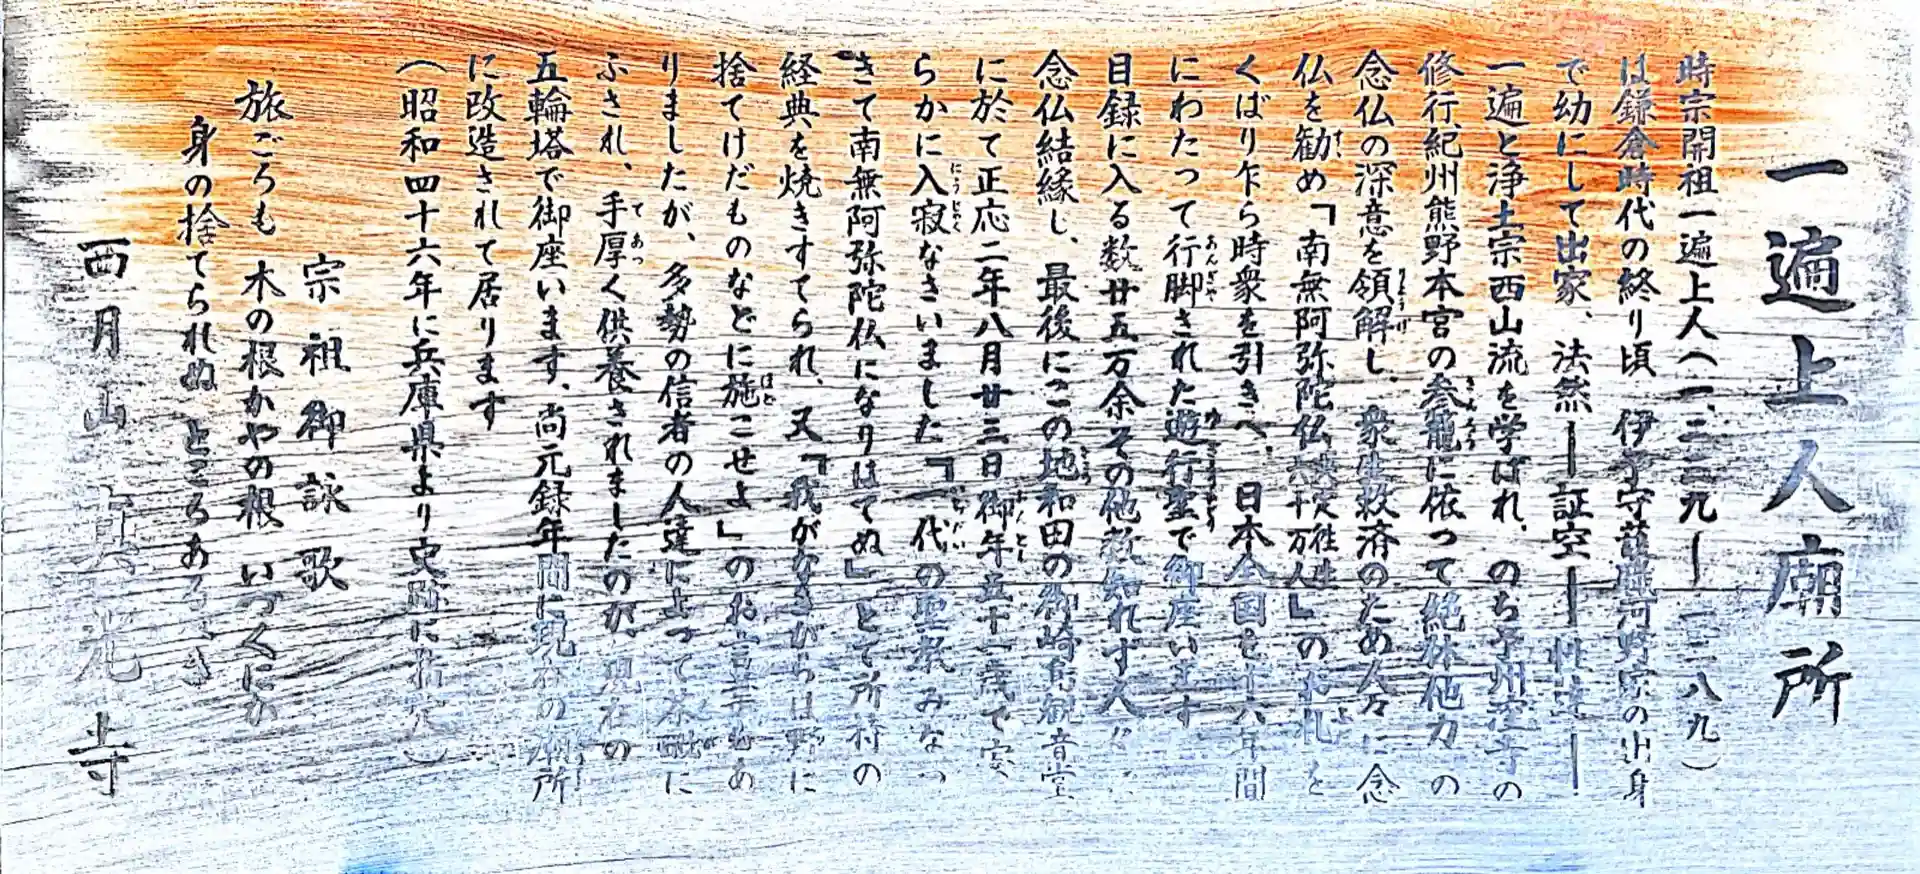 一遍上人廟所
時宗開祖一遍上人(一、二三九ー一二八九)
は鎌倉時代の終り頃 伊予守護 河野家の出身
で幼にして出家、法然ー証空ー
一遍と浄土宗西山流を学ばれ、のち予州窪寺の
修行、紀州熊野本宮の参籠に依って絶 他力の
念仏の深意を領解し、衆生救済のため人々に念
仏を勧め「南無阿弥陀仏決定往生六十万人」の を
くばり乍ら時衆を引きへ、日本全国を十六年間
にわたって行脚された遊行聖で御座います
目録に入る数廿五万余その他数知れず人
念仏結縁し、最後にこの地和田の御崎 観音堂
に於て正応二年八月廿三日御年五十一歳で安
らかに入寂なさいました「一代の聖教みなつ
きて南無阿弥陀仏になりはてぬ」とて所持の
経典を焼きすてられ、又「我がなきがらは野に
捨てけだものなどに施こせよ」のお言 もあ
りましたが、多勢の信者の人達によって荼毗に
ふされ、手厚く供養されましたのが、現在の
五輪塔で御座います、尚元録年間に現在の廟所
に改造されて居ります
(昭和四十六年に兵庫県より史跡に指定)
宗祖御詠歌
旅ごろも 木の根かやの根 いづくにか
身の捨てられぬ ところあるべき
西月山真光寺